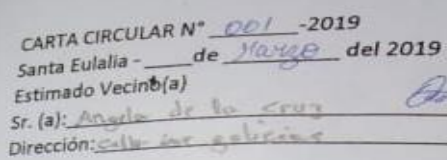 CARTA CIRCULAR N° 001 -2019
Santa Eulalia - ____ de Marzo del 2019
Estimado Vecino(a)
Sr. (a): Angela de la Cruz
Dirección: Calle las